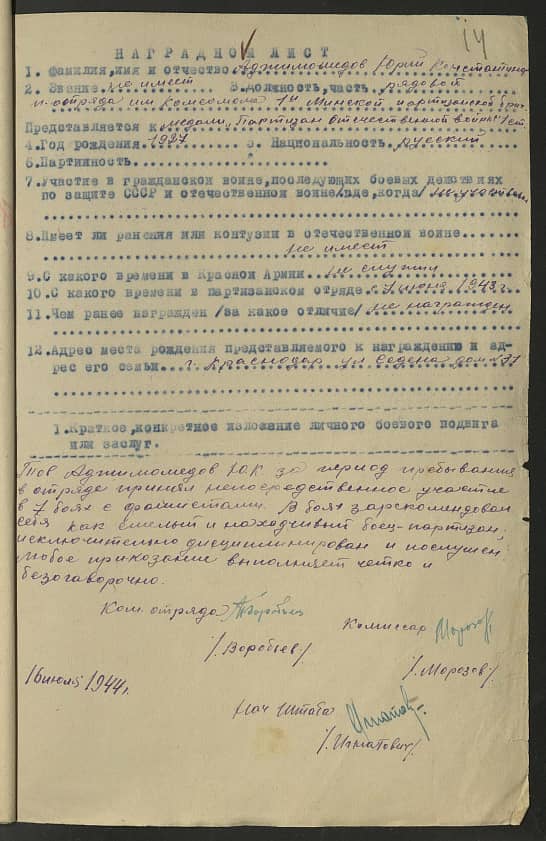 14
НАГРАДНОЙ ЛИСТ
1. Фамилия, имя и отчество Аджимомедов Юрий Константино
2. Звание не имеет 3. Должность, часть рядовой
п-отряда им Комсомола 1й Минской партизанской бри.
Представляется к медали „Партизан отечественной войны" 1 ст.
4. Год рождения 1927 5. Национальность русский
6. Партийность
7. Участие в гражданской войне, последующих боевых действиях
по защите СССР и отечественной войне/где, когда/
8. Имеет ли ранения или контузии в отечественной войне
не имеет
9. С какого времени в Красной Армии не служил
10. С какого времени в партизанском отряде с июня 1943 г.
11. Чем ранее награжден /за какое отличие/ не награжден
12. Адрес места рождения представляемого к награждению и ад-
рес его семьи г. Краснодар ул Седена дом
1. Краткое, конкретное изложение личного боевого подвига
или заслуг.
Тов Аджимомедов Ю.К за период пребывания
в отряде принял непосредственное участие
в 7 боях с фашистами. В боях зарекомендовал
себя как смелый и находчивый боец-партизан,
исключительно дисциплинирован и послушен.
Любое приказание выполняет четко и
безоговорочно.
Ком. отряда Воробьев
/Воробьев/
Комиссар Морозов
/Морозов/
16 июля 1944 г.
Нач Штаба
/Игнатович/